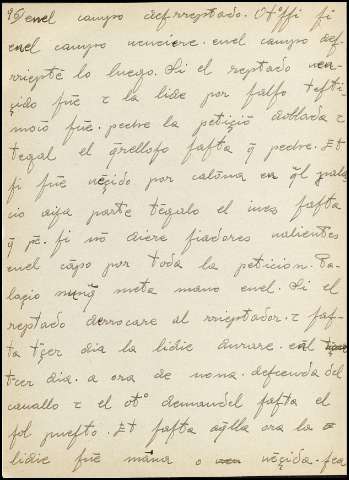 95/ enel campo defrreptado. Otͦffi fi
enel campo uenciere. enel campo def-
rriepte lo luego. Si el reptado uen-
çido fue τ la lide por falfo tefti-
moio fue. peche la petiçiō doblada τ
tegal el q̄rellofo fafta q̄ peche. Et
fi fue uẽçido por calōna en q̄l
cio aifa parte tẽgalo el iuez fafta
q̄ pc̄. fi nō diere fiadores ualientes
enel cāpo por toda la peticion. Ba-
lagio nūq̄ meta mano enel. Si el
reptado derrocare al rrieptador. τ faf-
ta tc̄er dia la lidie durare. en̄l
tcer dia. a ora de nona. defcenda del
cauallo τ el otͦ demandel fafta el
fol puefto. Et fafta aq̄lla ora la
lidie fue māna o uẽçida. fea